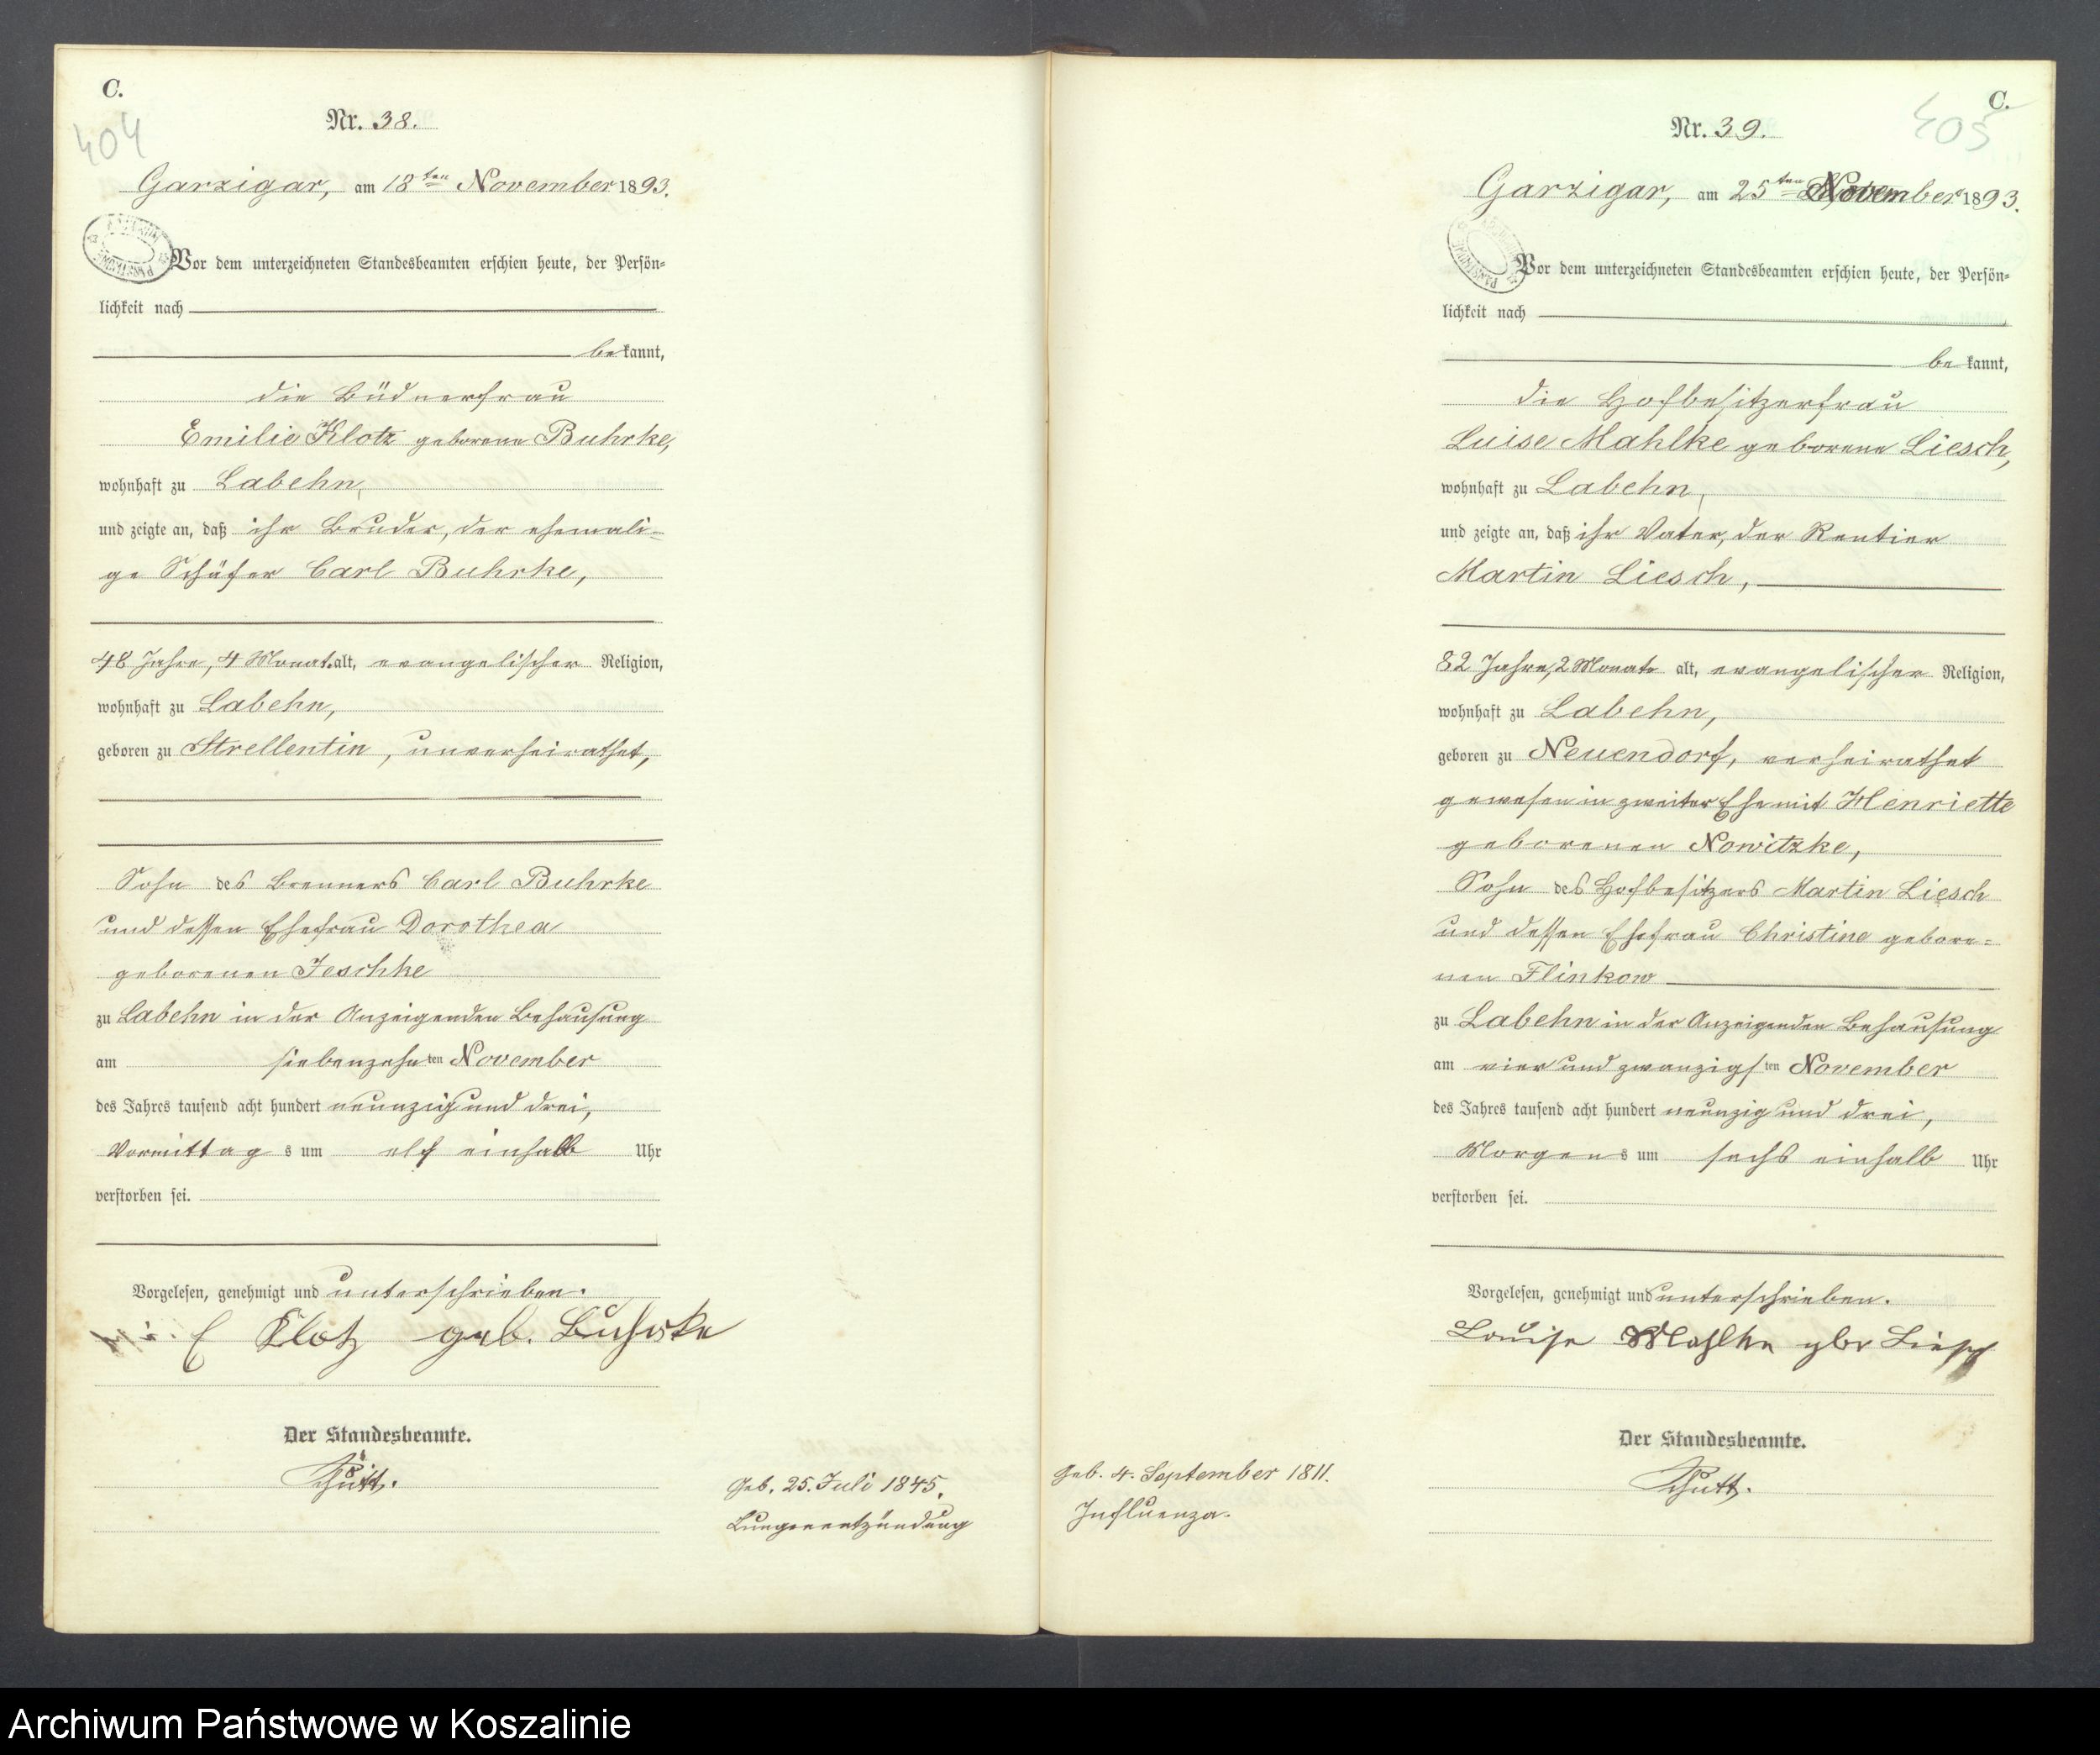 C.
404
Nr. 38.
Garzigar, am 18ten November 1893.
Vor dem unterzeichneten Standesbeamten erschien heute, der Persön-
lichkeit nach
bekannt,
die Büdnerfrau
Emilie Klotz geborene Buhrke,
wohnhaft zu Labehn,
und zeigte an, daß ihr Bruder, der ehemali-
ge Schäfer Carl Buhrke,
48 Jahre, 4 Monat alt, evangelischer Religion,
wohnhaft zu Labehn,
geboren zu Strellentin, unverheirathet,
Sohn des Brenners Carl Buhrke
und dessen Ehefrau Dorothea
geborenen Jeschke
zu Labehn in der Anzeigenden Behausung
am siebenzehnten November
des Jahres tausend acht hundert neunzig und drei,
Vormittags um elf einhalb Uhr
verstorben sei.
Vorgelesen, genehmigt und unterschrieben.
E Klotz geb. Buhrke
Der Standesbeamte.
Geb. 25. Juli 1845.
Lungenentzündung
C.
405
Nr. 39.
Garzigar, am 25ten November 1893.
Vor dem unterzeichneten Standesbeamten erschien heute, der Persön-
lichkeit nach
bekannt,
die Hofbesitzerfrau
Luise Mahlke geborene Liesch,
wohnhaft zu Labehn,
und zeigte an, daß ihr Vater, der Rentier
Martin Liesch,
82 Jahre, 2 Monate alt, evangelischer Religion,
wohnhaft zu Labehn,
geboren zu Neuendorf, verheirathet
gewesen in zweiter Ehe mit Henriette
geborenen Nowitzke,
Sohn des Hofbesitzers Martin Liesch
und dessen Ehefrau Christine gebore-
nen Flinkow
zu Labehn in der Anzeigenden Behausung
am vier und zwanzigsten November
des Jahres tausend acht hundert neunzig und drei,
Morgens um sechs einhalb Uhr
verstorben sei.
Vorgelesen, genehmigt und unterschrieben.
Louise Mahlke gbr Liesch
Der Standesbeamte.
Geb. 4. September 1811.
Influenza.
Archiwum Państwowe w Koszalinie